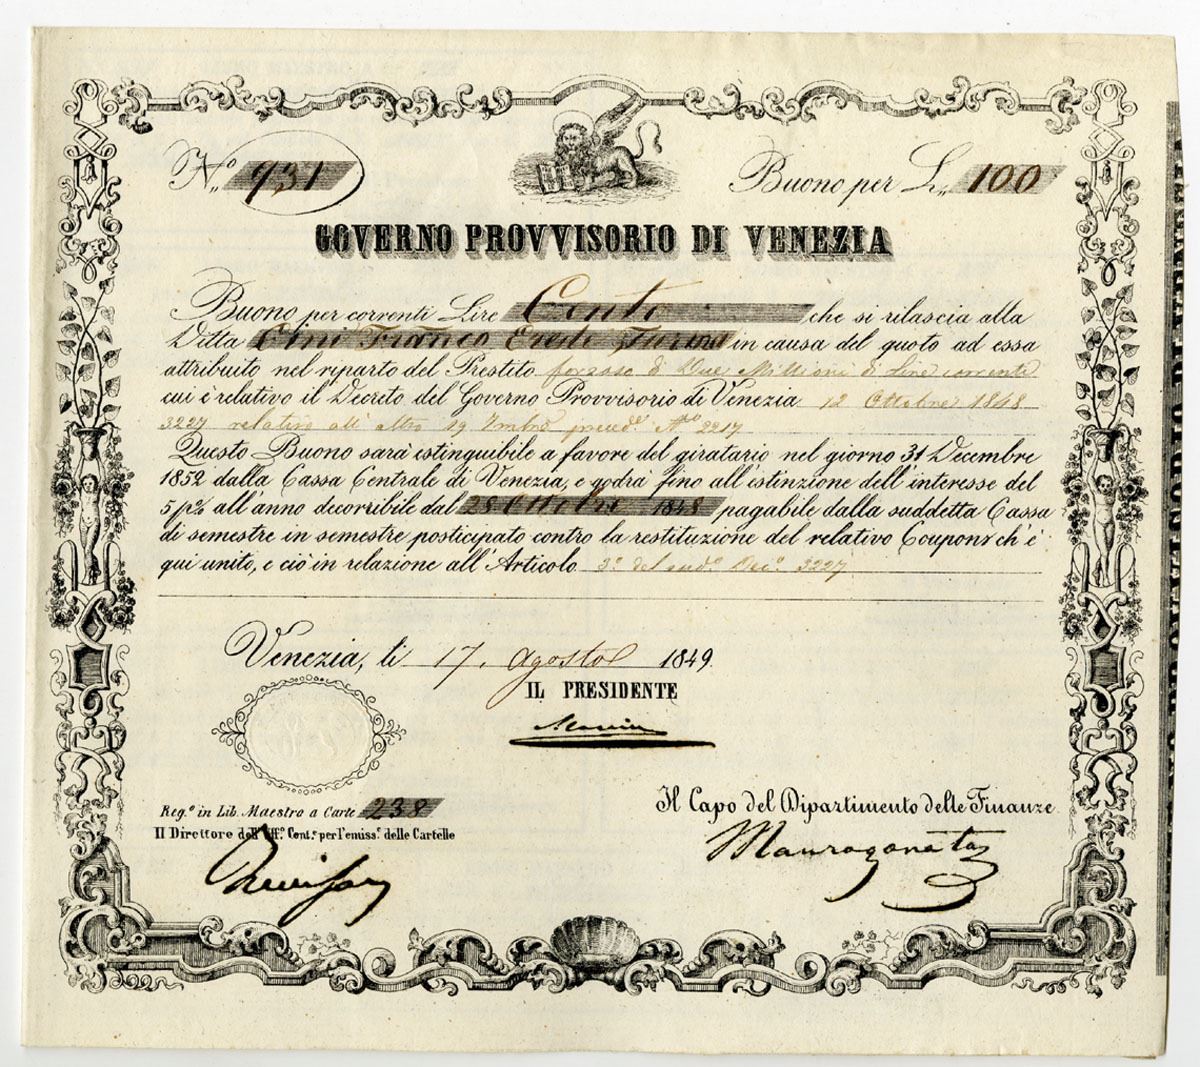 N.° 931
Buono per L. 100
GOVERNO PROVVISORIO DI VENEZIA
Buono per correnti Lire Cento che si rilascia alla
Ditta Franco Eredi in causa del quoto ad essa
attribuito nel riparto del Prestito forzoso di Due Millioni di Lire correnti
cui è relativo il Decreto del Governo Provvisorio di Venezia 12 Ottobre 1848
3227 relativo all' altro 19 7mbre preced.e N.o 2217
Questo Buono sarà estinguibile a favore del giratario nel giorno 31 Decembre
1852 dalla Cassa Centrale di Venezia, e godrà fino all'istinzione dell'interesse del
5 p% all'anno decorribile dal 28 Ottobre 1848 pagabile dalla suddetta Cassa
di semestre in semestre posticipato contro la restituzione del relativo Coupons ch'è
qui unito, e ciò in relazione all'Articolo 3° del sud.° Dec.° 3227
Venezia, li 17. Agosto 1849
IL PRESIDENTE
Manin
Reg.° in Lib. Maestro a Carte 238
Il Capo del Dipartimento delle Finanze
Il Direttore dell'Uff.° Cont.e per l'emiss.e delle Cartelle
Maurogonato